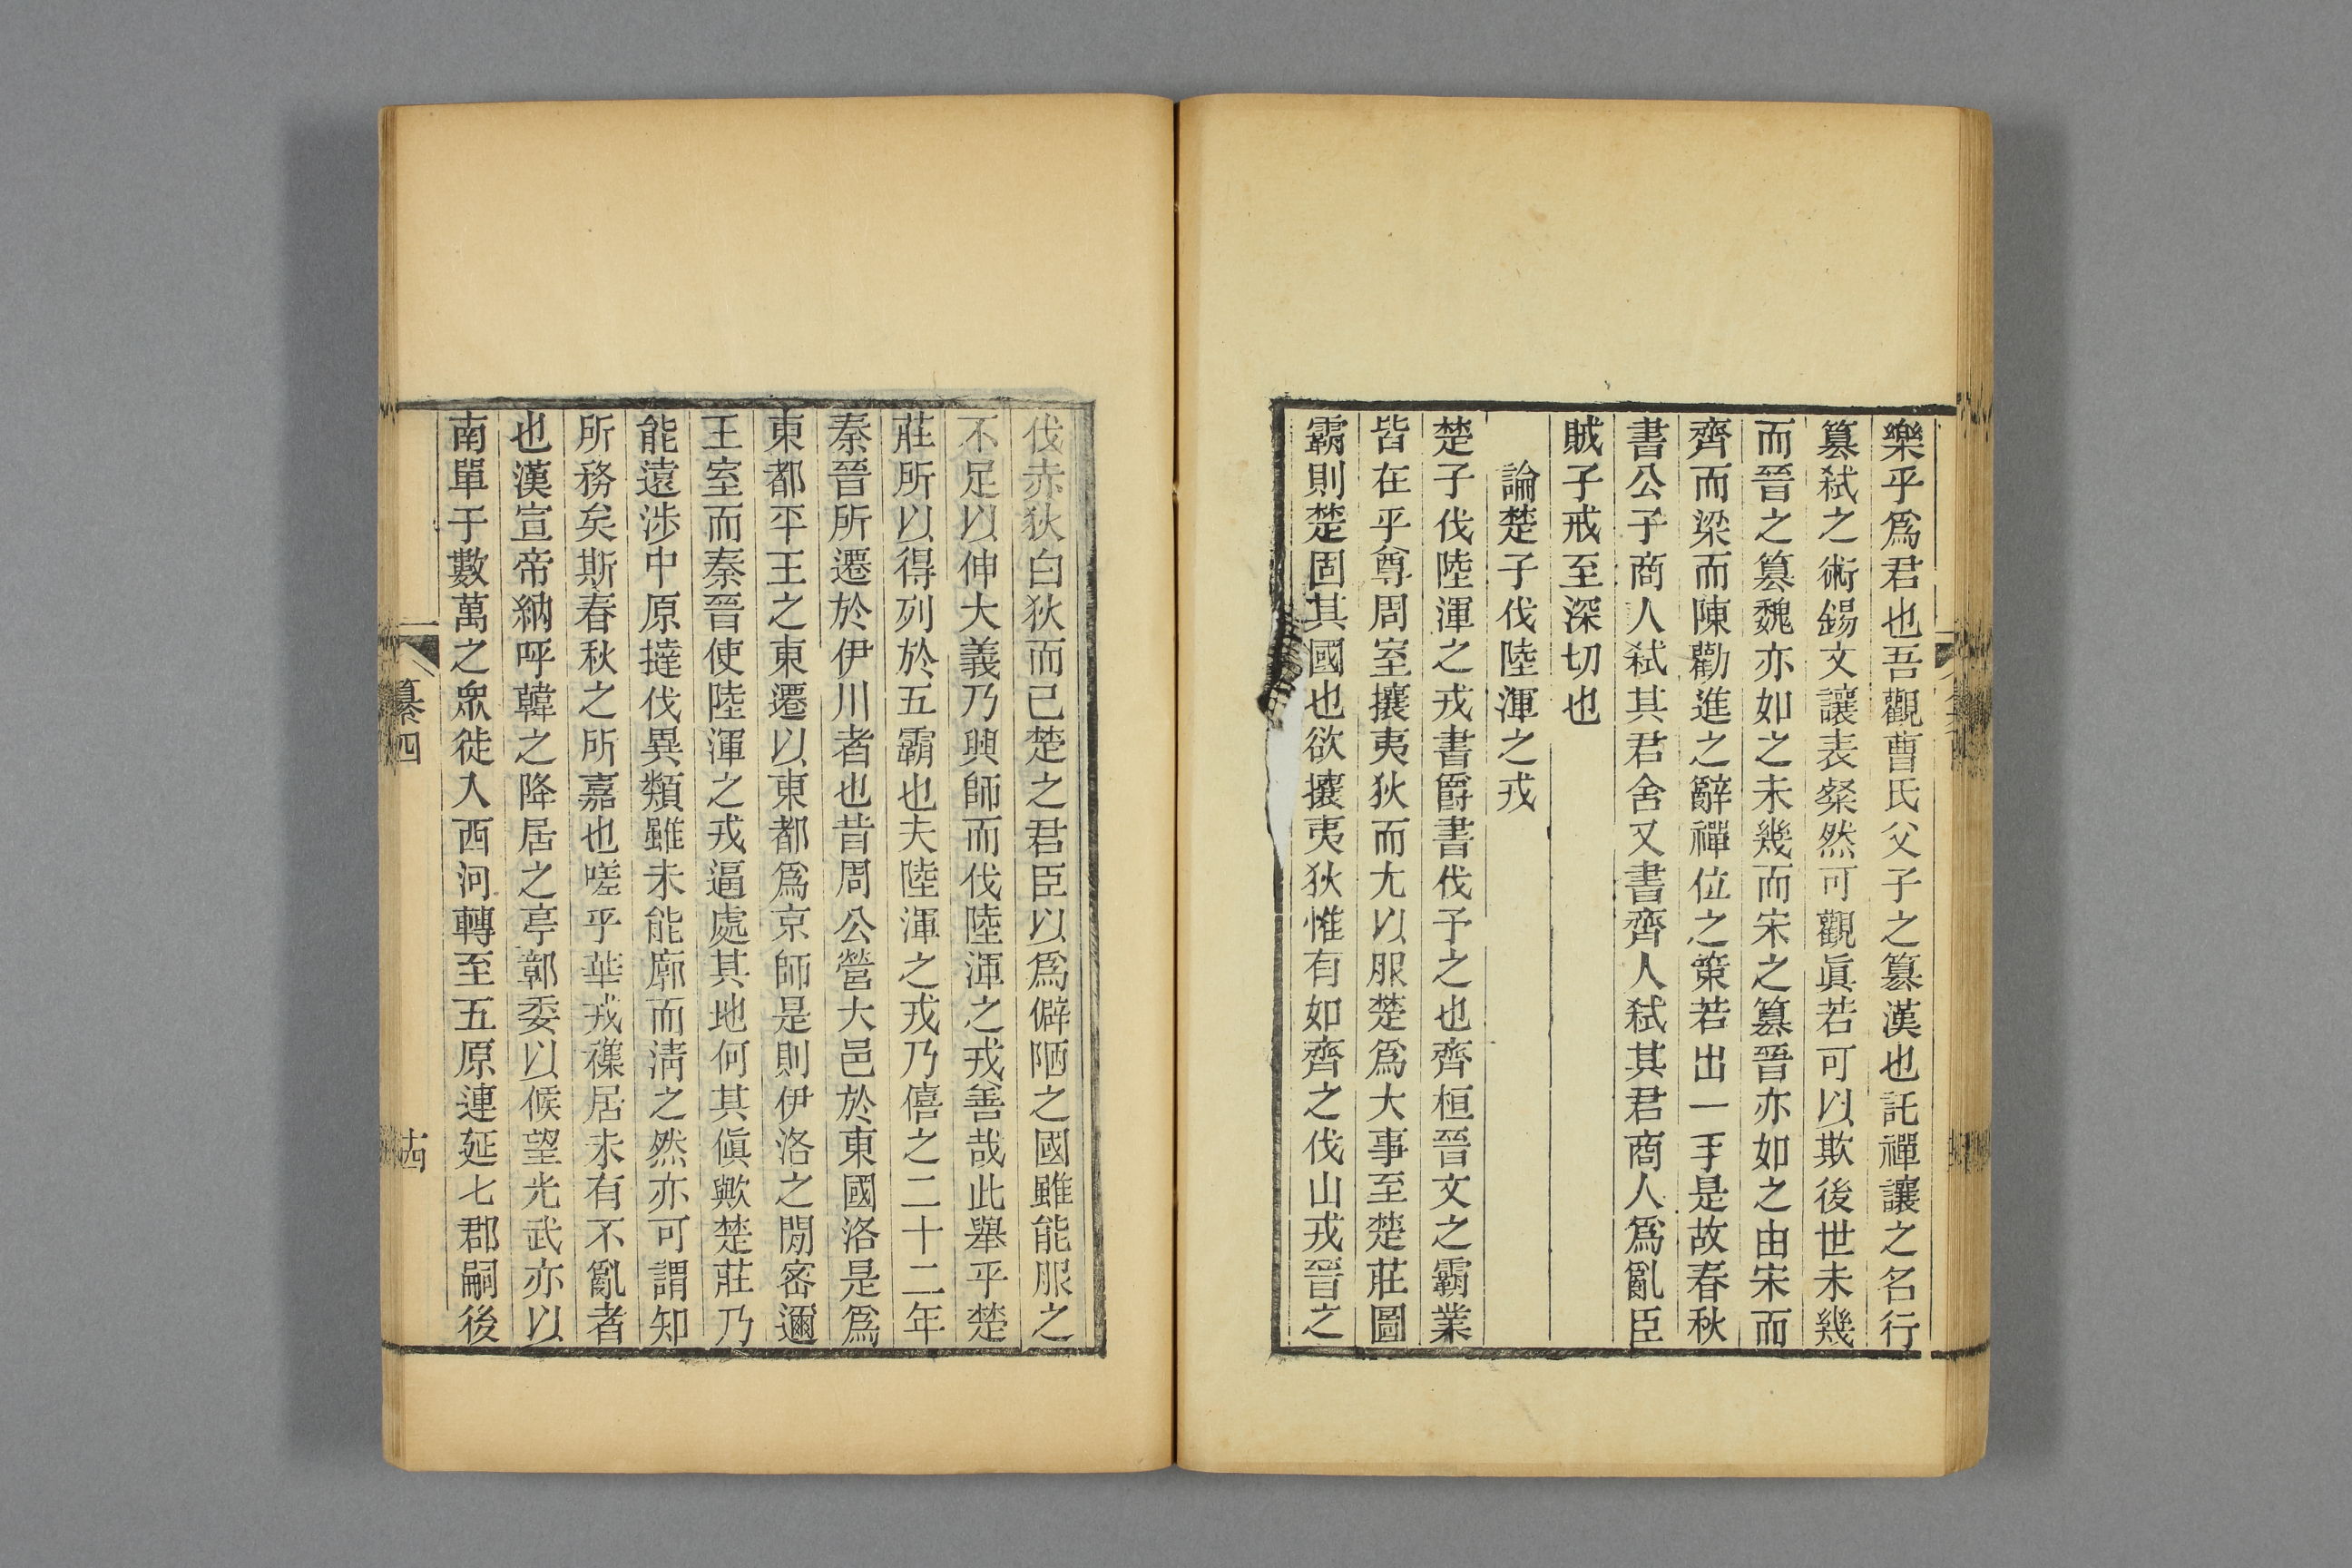 樂乎爲君也吾觀曹氏父子之篡漢也託禪讓之名行
篡弑之術錫文讓表粲然可觀眞若可以欺後世未幾
而晉之篡魏亦如之未幾而宋之篡晉亦如之由宋而
齊而梁而陳勸進之辭禪位之策若出一手是故春秋
書公子商人弑其君舍又書齊人弑其君商人爲亂臣
賊子戒至深切也
論楚子伐陸渾之戎
楚子伐陸渾之戎書爵書伐予之也齊桓晉文之霸業
皆在乎尊周室攘夷狄而尤以服楚爲大事至楚莊圖
霸則楚固其國也欲攘夷狄惟有如齊之伐山戎晉之
伐赤狄白狄而已楚之君臣以爲僻陋之國雖能服之
不足以伸大義乃興師而伐陸渾之戎善哉此舉乎楚
莊所以得列於五霸也夫陸渾之戎乃僖之二十二年
秦晉所遷於伊川者也昔周公營大邑於東國洛是爲
東都平王之東遷以東都爲京師是則伊洛之閒密邇
王室而秦晉使陸渾之戎逼處其地何其傎歟楚莊乃
能遠涉中原撻伐異類雖未能廓而淸之然亦可謂知
所務矣斯春秋之所嘉也嗟乎華戎襍居未有不亂者
也漢宣帝納呼韓之降居之亭鄣委以候望光武亦以
南單于數萬之衆徙入西河轉至五原連延七郡嗣後
纂四
十四